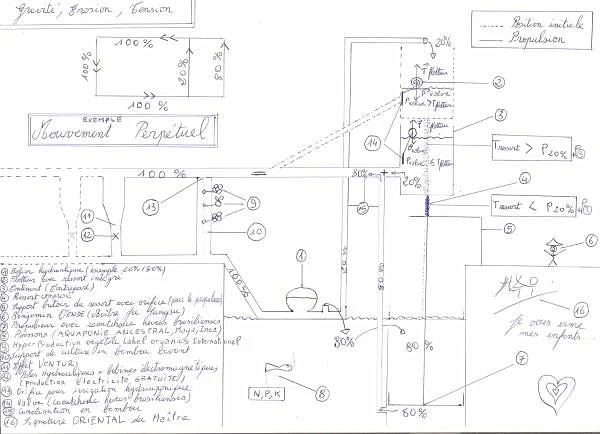 Gravité, Erosion, Tension
Position initiale
Propulsion
100%
100%
20%
80%
100%
EXEMPLE
Mouvement Perpétuel
20%
T flotteur
2
P valve
P valve > T flotteur
3
14
T ressort > P 20%
100%
80%
20%
4
T ressort < P 20%
13
9
11
12
10
15
5
6
1
100%
16
Je vous aime
mes enfants...
80%
80%
7
N, P, K
8
80%
1 Bélier hydraulique (exemple 20% / 80%)
2 Flotteur avec ressort intégré
3 Contenant
4 Ressort comprimé
5 Support butoir du ressort avec orifice (pour le propulseur)
6 Benjamin
7 Propulseur avec caoutchouc hévéas brasiliensis
8 Poissons (AQUAPONIE ANCESTRAL Maya, Inca)
9 Hyper-Production végétale label organics International
10 Support de culture en bambou vivant
11 Effet VENTURI
12 Hélices Hydrauliques + bobines électromagnétiques
(Production électricité GRATUITE)
13 Orifice pour irrigation hydroponique
14 Valve (caoutchouc hévéas brasiliensis)
15 Canalisation en bambou
16 Signature ORIENTAL du Maître